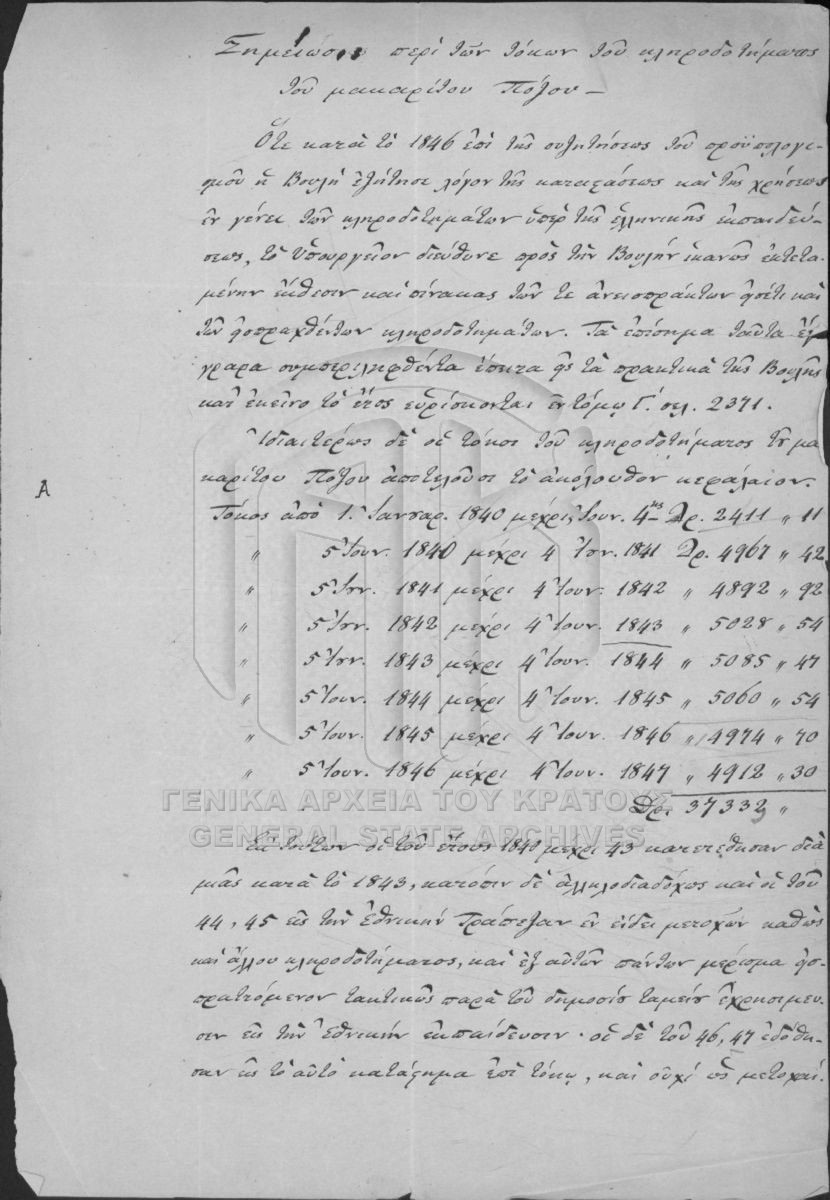 Σημείωσις περὶ τῶν τόκων τοῦ κληροδοτήματος
τοῦ μακαρίτου Πόζου —
Ὅτε κατὰ τὸ 1846 ἐπὶ τῆς συζητήσεως τοῦ προϋπολογι-
σμοῦ ἡ Βουλὴ ἐζήτησε λόγον τῆς καταστάσεως καὶ τῆς χρήσεως
ἐν γένει τῶν κληροδοτημάτων ὑπὲρ τῆς ἑλληνικῆς ἐκπαιδεύ-
σεως, τὸ Ὑπουργεῖον διεύθυνε πρὸς τὴν Βουλὴν ἱκανῶς ἐκτετα-
μένην ἔκθεσιν καὶ πίνακας τῶν τε ἀνεισπράκτων εἰσέτι καὶ
τῶν εἰσπραχθέντων κληροδοτημάτων. Τὰ ἐπίσημα ταῦτα ἔγ-
γραφα συμπεριληφθέντα ἔπειτα εἰς τὰ πρακτικὰ τῆς Βουλῆς
κατ' ἐκεῖνο τὸ ἔτος εὑρίσκονται ἐν τόμῳ Γ.' σελ. 2371.
Ἰδιαιτέρως δὲ οἱ τόκοι τοῦ κληροδοτήματος τοῦ μα
καρίτου Πόζου ἀποτελοῦσι τὸ ἀκόλουθον κεφάλαιον.
Α
Τόκος ἀπὸ 1. Ἰανουαρ. 1840 μέχρι Ἰουν. 4ης Δρ. 2411 „ 11
„ 5 Ἰουν. 1840 μέχρι 4 Ἰουν. 1841 Δρ. 4967 „ 42
„ 5 Ἰουν. 1841 μέχρι 4 Ἰουν. 1842 „ 4892 „ 92
„ 5 Ἰουν. 1842 μέχρι 4 Ἰουν. 1843 „ 5028 „ 54
„ 5 Ἰουν. 1843 μέχρι 4 Ἰουν. 1844 „ 5085 „ 47
„ 5 Ἰουν. 1844 μέχρι 4 Ἰουν. 1845 „ 5060 „ 54
„ 5 Ἰουν. 1845 μέχρι 4 Ἰουν. 1846 „ 4974 „ 70
„ 5 Ἰουν. 1846 μέχρι 4 Ἰουν. 1847 „ 4912 „ 30
Δρ. 37333 „
ΓΕΝΙΚΑ ΑΡΧΕΙΑ ΤΟΥ ΚΡΑΤΟΥΣ
GENERAL STATE ARCHIVES
Ἐκ τούτων οἱ τοῦ ἔτους 1840 μέχρι 43 κατετέθησαν διὰ
μιᾶς κατὰ τὸ 1843, κατόπιν δὲ ἀλληλοδιαδόχως καὶ οἱ τοῦ
44, 45 εἰς τὴν Ἐθνικὴν Τράπεζαν ἐν εἴδει μετοχῶν καθὼς
καὶ ἄλλου κληροδοτήματος, καὶ ἐξ αὐτῶν πάντων μέρισμα εἰσ-
πραττόμενον τακτικῶς παρὰ τοῦ δημοσίου ταμείου ἐχρησίμευ-
σεν εἰς τὴν Ἐθνικὴν ἐκπαίδευσιν· οἱ δὲ τοῦ 46, 47 ἐδόθη-
σαν εἰς τὸ αὐτὸ κατάστημα ἐπὶ τόκῳ, καὶ οὐχὶ ὡς μετοχαί.